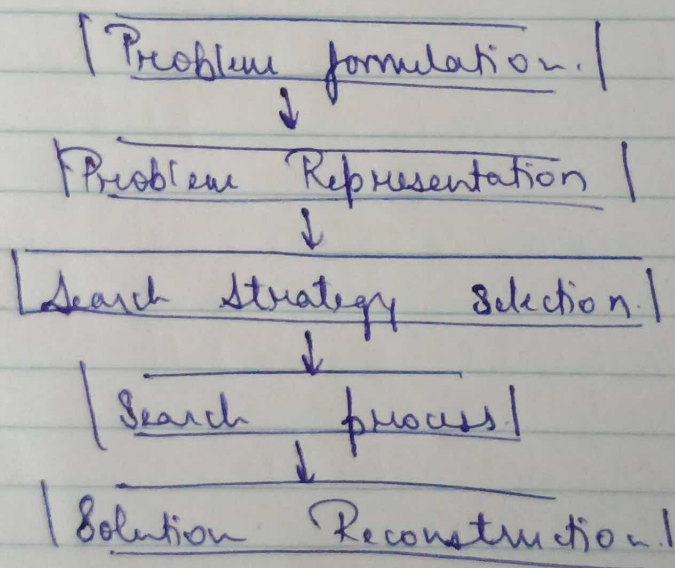 Problem formulation.
↓
Problem Representation
↓
Search Strategy Selection.
↓
Search process
↓
Solution Reconstruction.